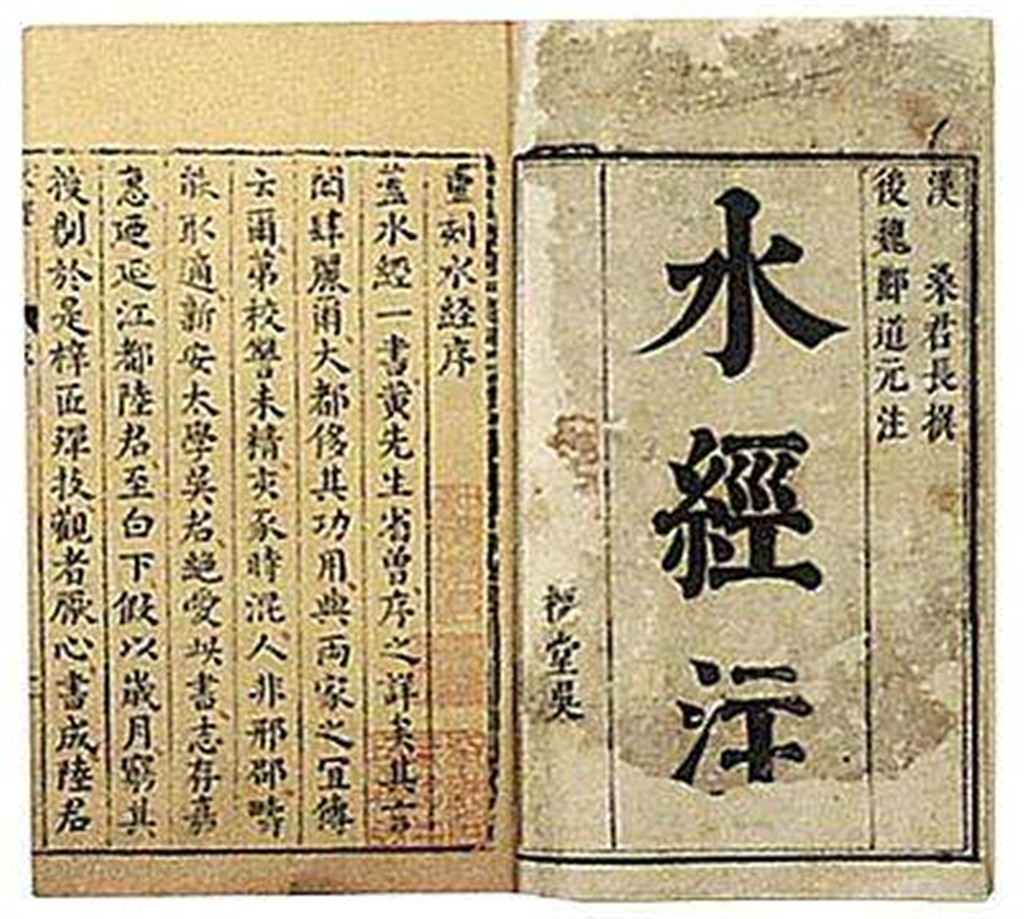 漢 桑君長撰
後魏酈道元注
水經注
堂吳
重刻水経序
蓋水經一書黄先生省曾序之詳矣其言
閎肆麗爾大都侈其功用與両家之冝傳
云爾苐校讐未精亥豕時混人非邢邵疇
能水適新安太學吳君絶愛此書志存嘉
惠延江都陸君至白下假以歳月窮其
於是梓匠殫技觀者厭心書成陸君